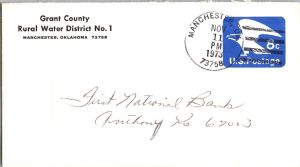 Grant County
Rural Water District No. 1
MANCHESTER, OKLAHOMA 73758
MANCHESTER
NOV
11
PM
1973
73758
8c
U.S. Postage
First National Bank
Anthony Ks 67003